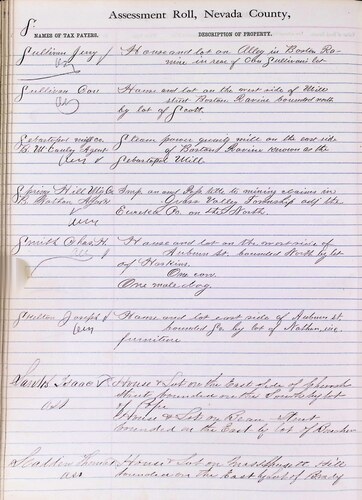 S.
Assessment Roll, Nevada County,
NAMES OF TAX PAYERS.
DESCRIPTION OF PROPERTY.
Sullivan Jerry House and lot on Alley in Boston Ra-
vine in rear of Con Sullivans lot
Sullivan Con House and lot on the west side of Mill
street Boston Ravine bounded north
by lot of Scott.
Sebastopol mill co Steam power quartz mill on the east side
E. W. Conley Agent of Boston Ravine known as the
Sebastopol Mill.
Spring Hill Mg Co Imp. on and Poss title to mining claims in
Agent Grass Valley Township adj the
Eureka Co. on the North.
Smith Chas. H. House and lot on the west side of
Auburn st. bounded North by lot
of Harkins.
One cow.
One male dog.
Shelter Joseph House and lot east side of Auburn st
bounded So. by lot of Nathan, inc
furniture
Isaac House & Lot on the East side of Church
street bounded on the South by lot
of Pope
House & Lot on Street
bounded on the East by lot of
House & Lot on Hill
bounded on the East by lot of Brady